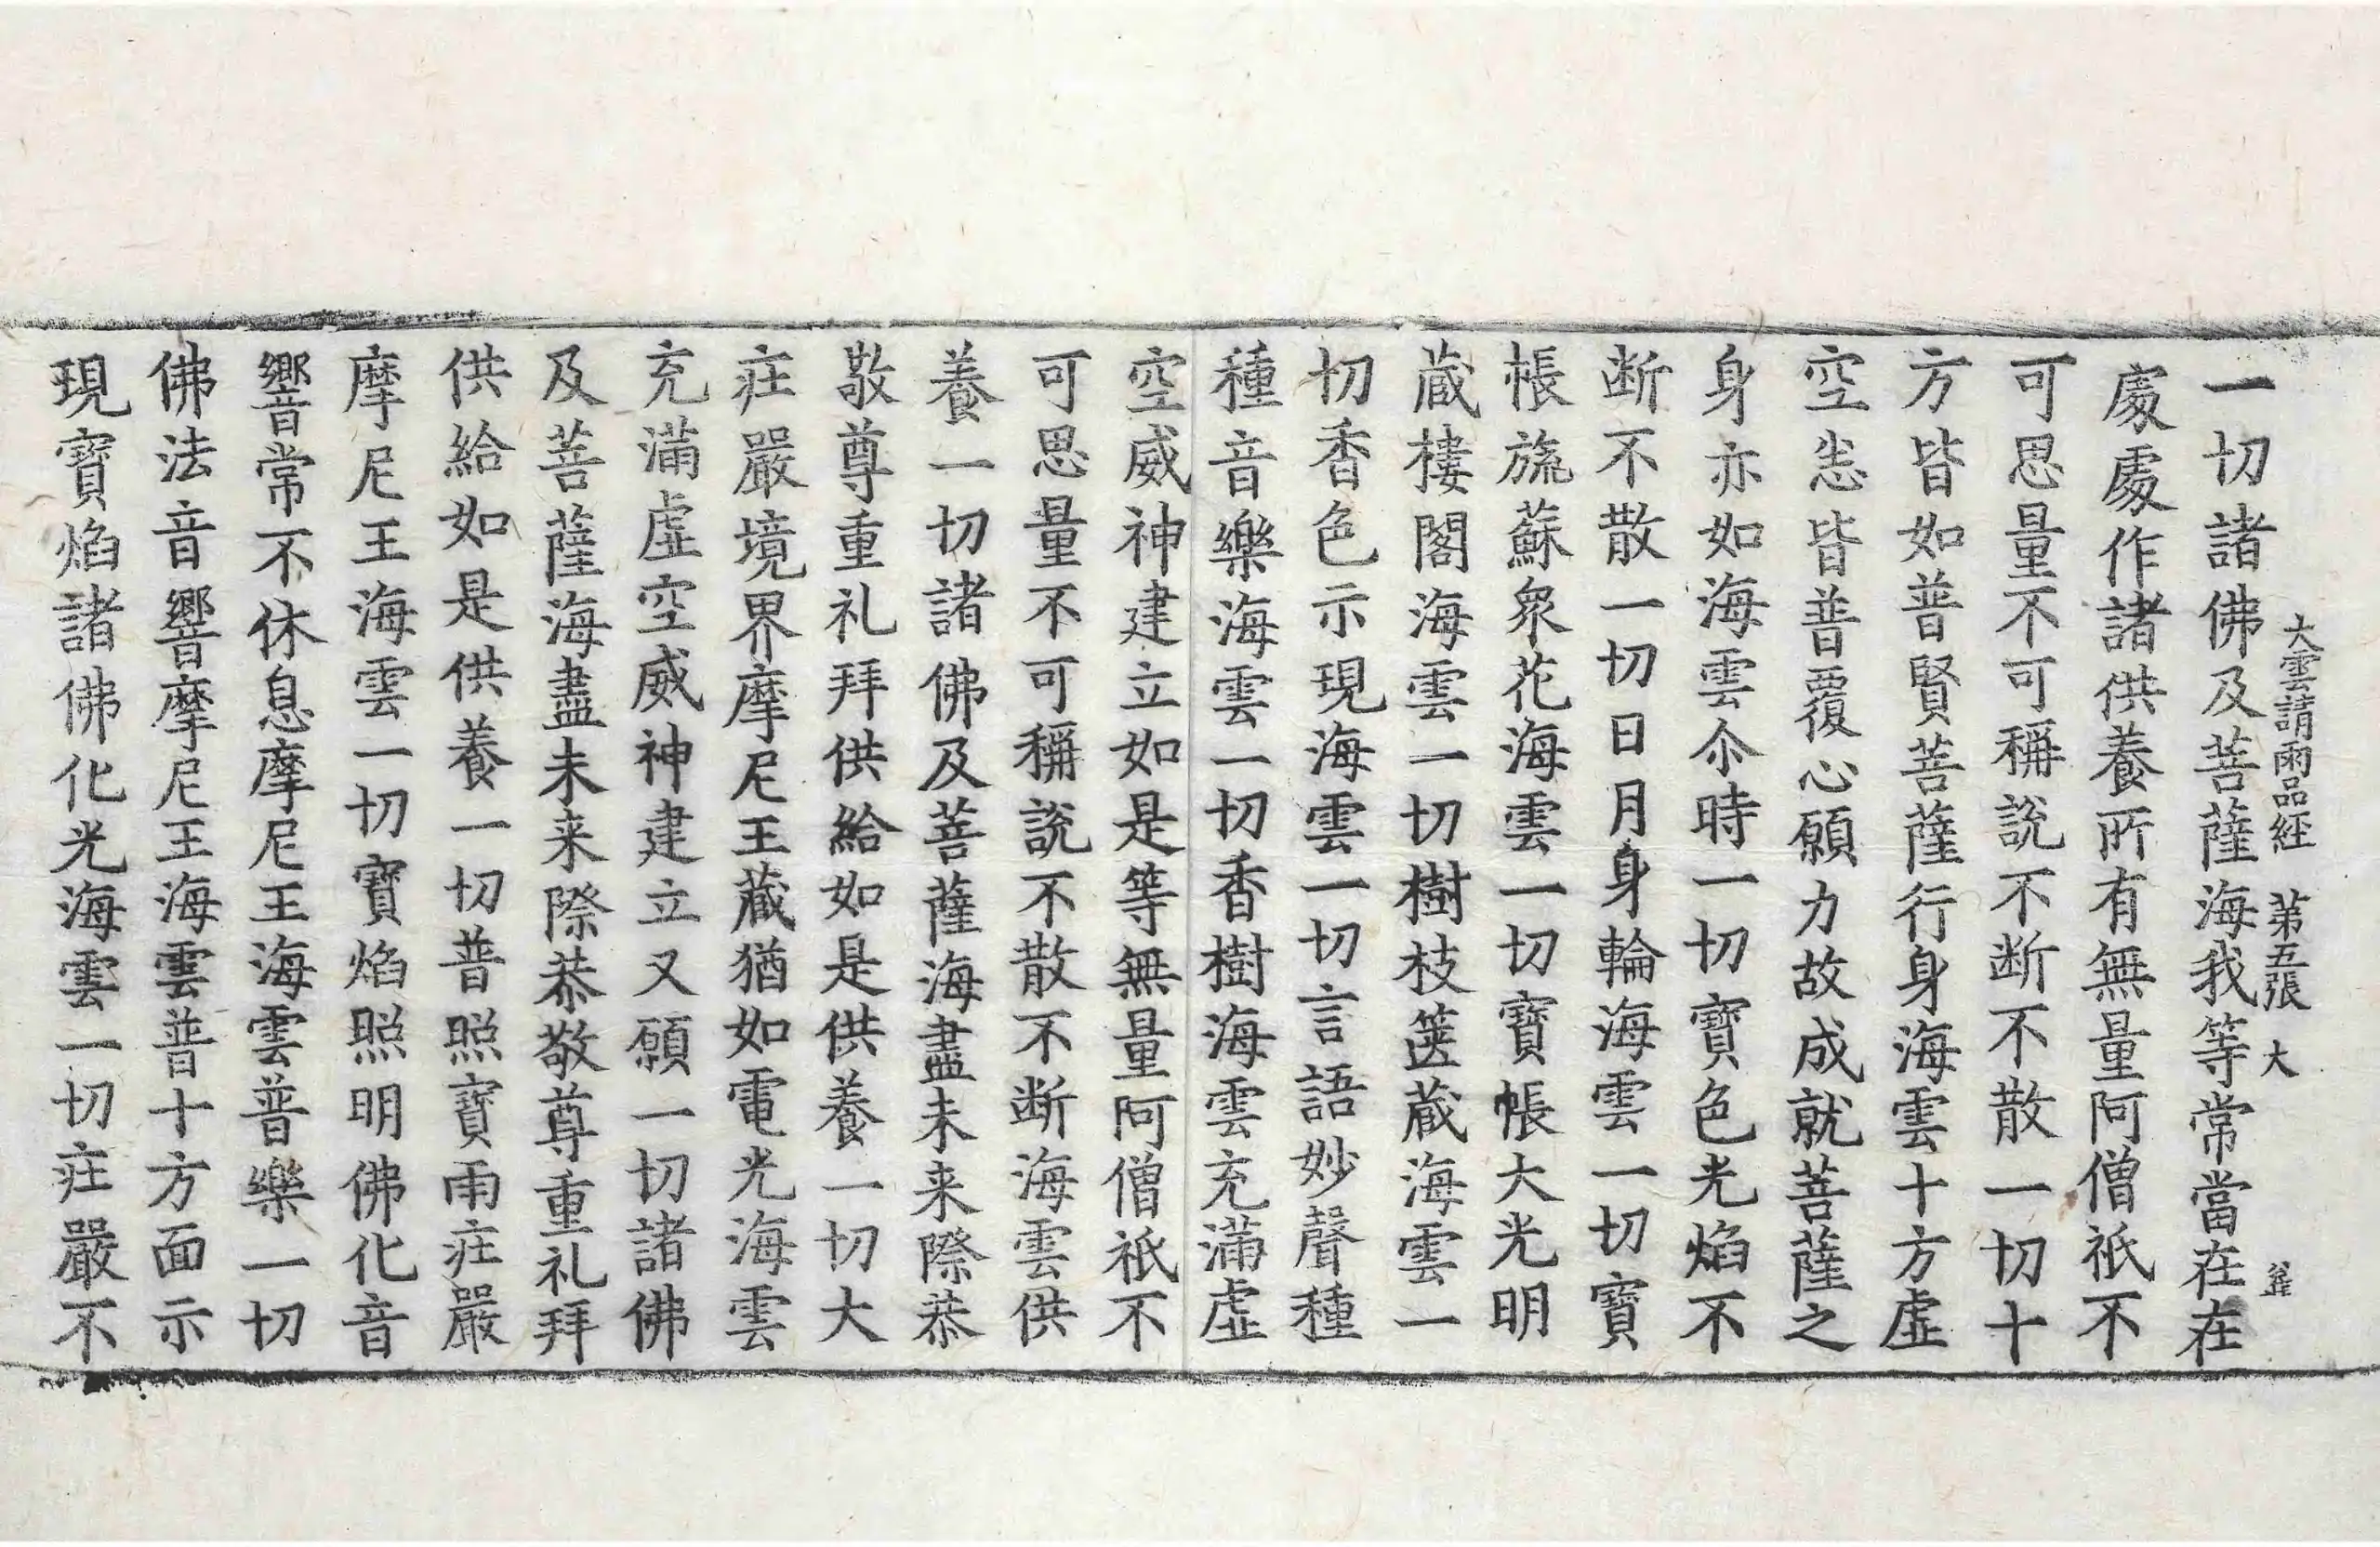 大雲請雨品經 第五張 大
一切諸佛及菩薩海我等常當在在
處處作諸供養所有無量阿僧祇不
可思量不可稱說不断不散一切十
方皆如普賢菩薩行身海雲十方虛
空悉皆普覆心願力故成就菩薩之
身亦如海雲尒時一切寶色光焰不
断不散一切日月身輪海雲一切寶
帳旒蘇衆花海雲一切寶帳大光明
蔵樓閣海雲一切樹枝篋蔵海雲一
切香色示現海雲一切言語妙聲種
種音樂海雲一切香樹海雲充滿虛
空威神建立如是等無量阿僧祇不
可思量不可稱說不散不断海雲供
養一切諸佛及菩薩海盡未来際恭
敬尊重礼拜供給如是供養一切大
莊嚴境界摩尼王蔵猶如電光海雲
充滿虛空威神建立又願一切諸佛
及菩薩海盡未来際恭敬尊重礼拜
供給如是供養一切普照寶雨莊嚴
摩尼王海雲一切寶焰照明佛化音
響常不休息摩尼王海雲普樂一切
佛法音響摩尼王海雲普十方面示
現寶焰諸佛化光海雲一切莊嚴不